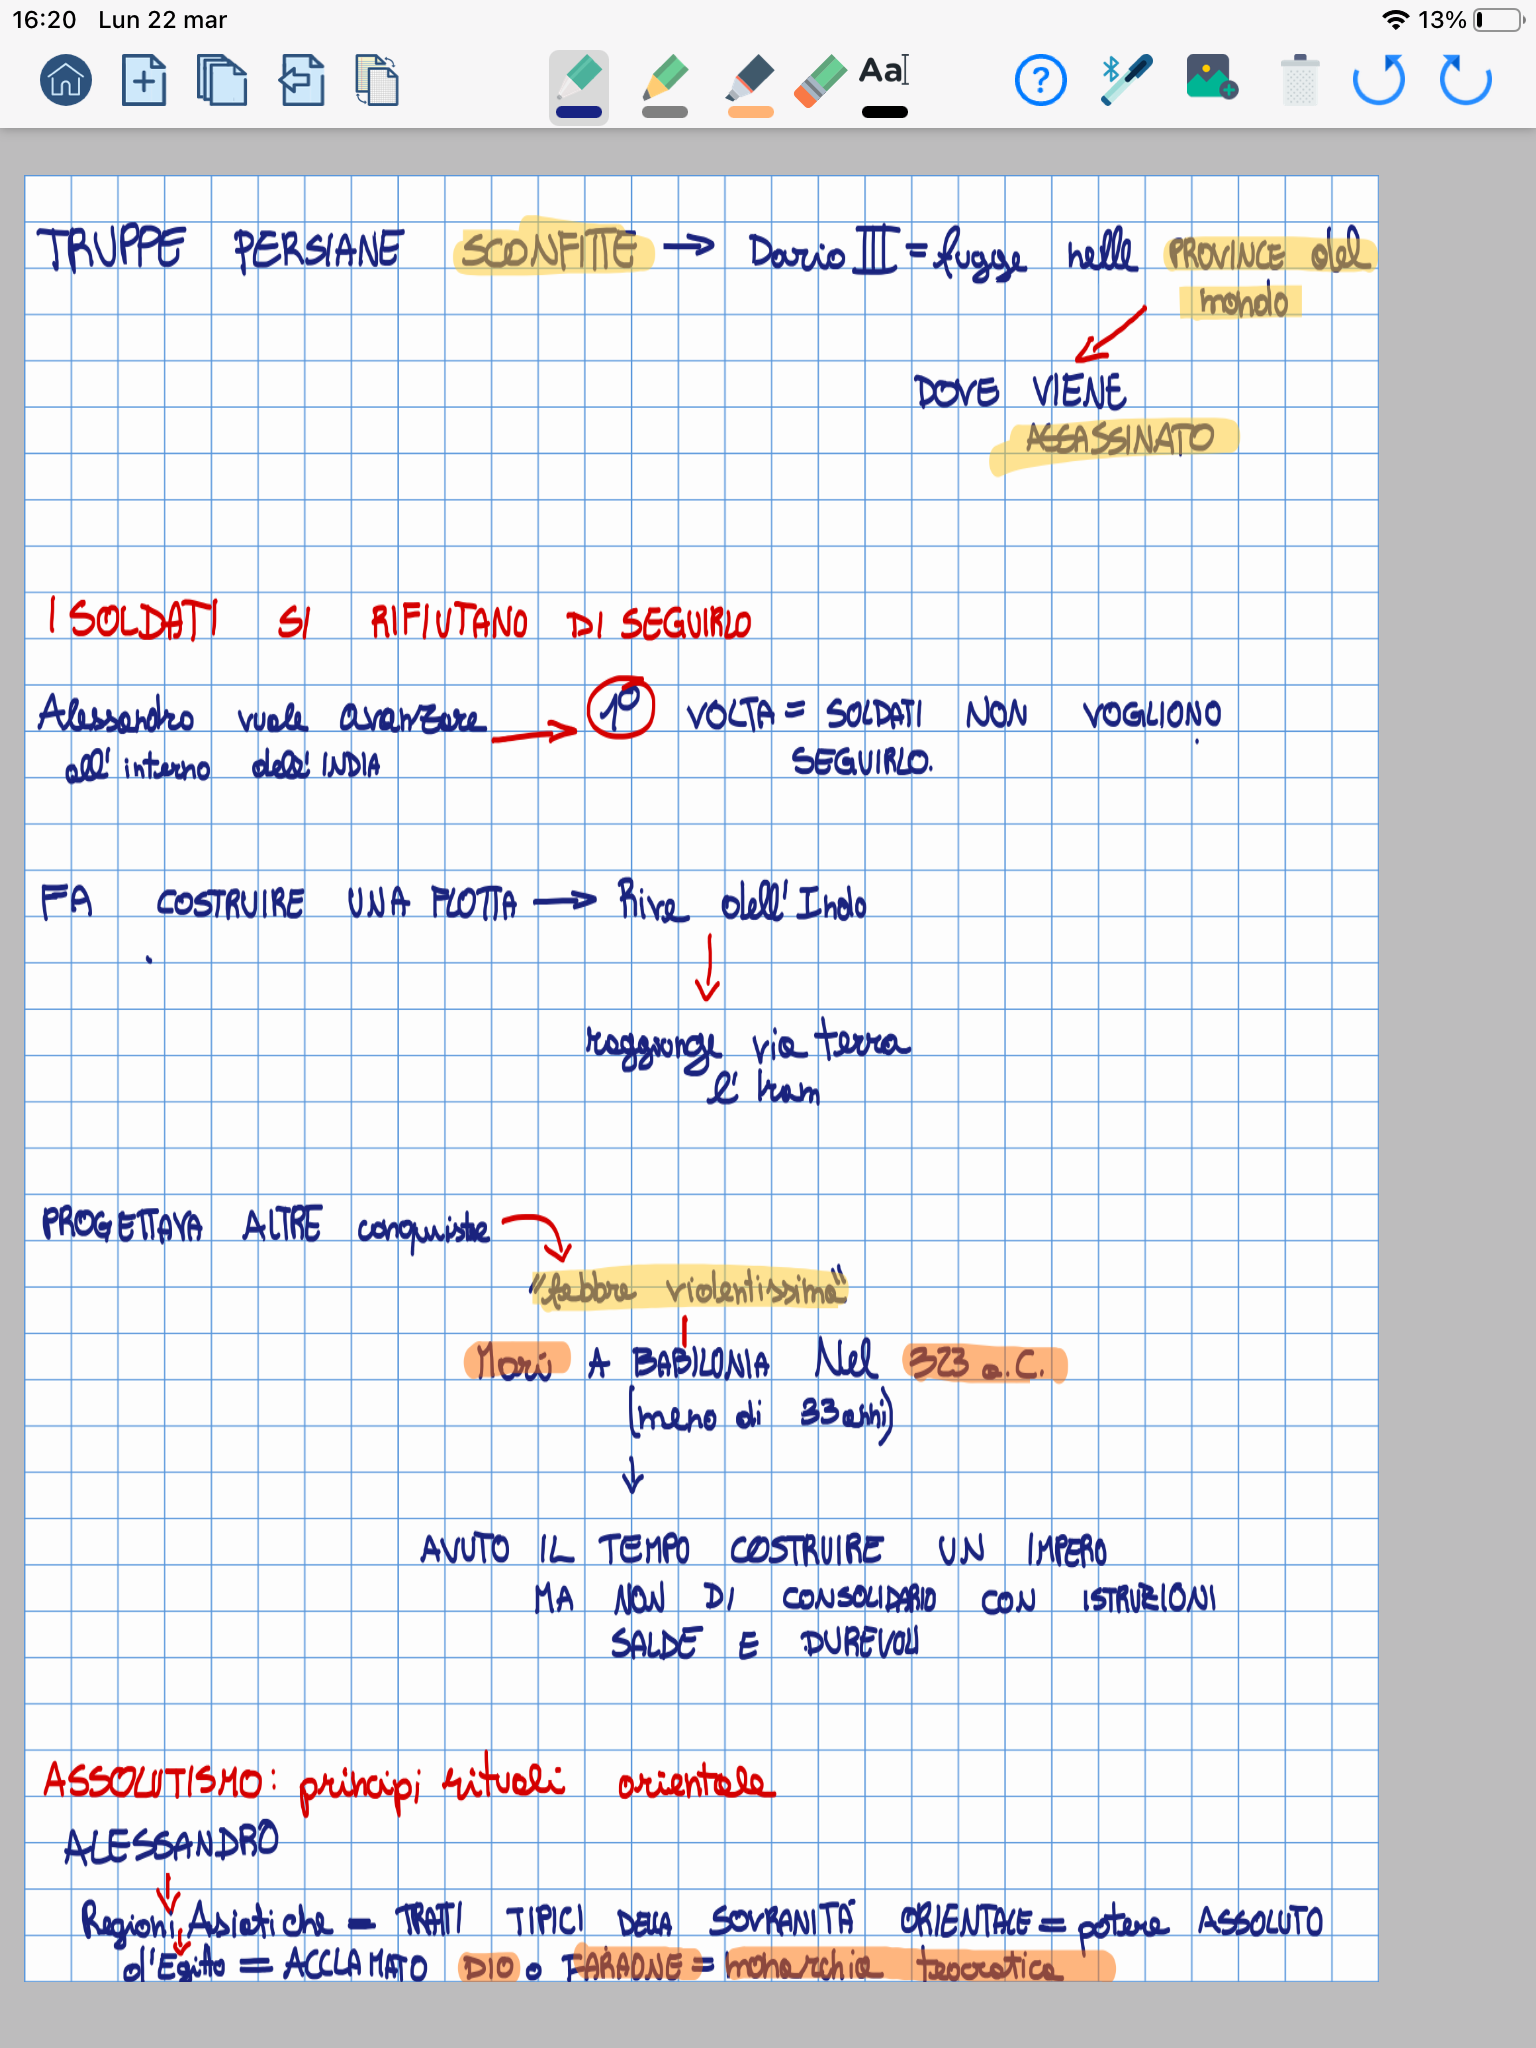 16:20 Lun 22 mar 13%
Aa
?
TRUPPE PERSIANE SCONFITTE → Dario III = fugge nelle PROVINCE del
mondo
DOVE VIENE
ASSASSINATO
I SOLDATI SI RIFIUTANO DI SEGUIRLO
Alessandro vuole avanzare → 1º VOLTA = SOLDATI NON VOGLIONO
all'interno dell'INDIA SEGUIRLO.
FA COSTRUIRE UNA FLOTTA → Rive dell'Indo
raggiunge via terra
l'Iran
PROGETTAVA ALTRE conquiste
"febbre violentissima"
Morì A BABILONIA Nel 323 a.C.
(meno di 33 anni)
AVUTO IL TEMPO COSTRUIRE UN IMPERO
MA NON DI CONSOLIDARIO CON ISTRUZIONI
SALDE E DUREVOLI
ASSOLUTISMO: principi rituali orientale
ALESSANDRO
Regioni Asiatiche = TRATTI TIPICI DELLA SOVRANITÀ ORIENTALE = potere ASSOLUTO
d'Egitto = ACCLAMATO DIO o FARAONE = monarchia teocratica